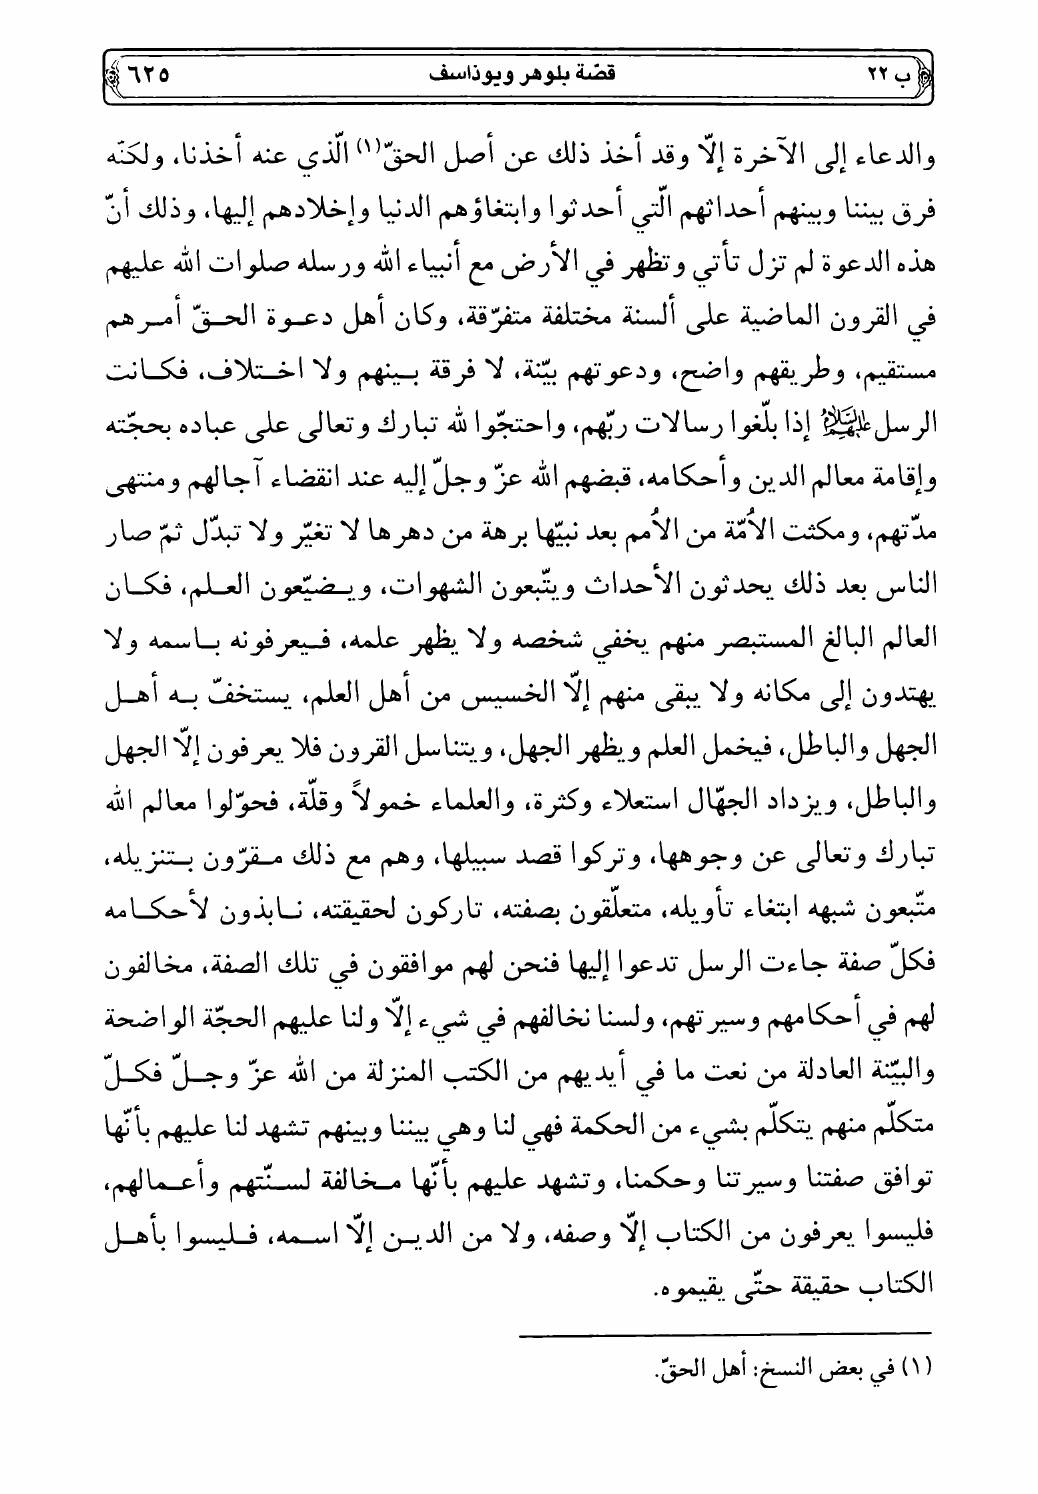 ب ٢٢ قصّة بلوهر ويوذاسف ٦٢٥
والدعاء إلى الآخرة إلّا وقد أخذ ذلك عن أصل الحقّ(١) الّذي عنه أخذنا، ولكنّه
فرق بيننا وبينهم أحداثهم الّتي أحدثوا وابتغاؤهم الدنيا وإخلادهم إليها، وذلك أنّ
هذه الدعوة لم تزل تأتي وتظهر في الأرض مع أنبياء الله ورسله صلوات الله عليهم
في القرون الماضية على ألسنة مختلفة متفرّقة، وكان أهل دعوة الحقّ أمرهم
مستقيم، وطريقهم واضح، ودعوتهم بيّنة، لا فرقة بينهم ولا اختلاف، فكانت
الرسل عليهم السلام إذا بلّغوا رسالات ربّهم، واحتجّوا لله تبارك وتعالى على عباده بحجّته
وإقامة معالم الدين وأحكامه، قبضهم الله عزّ وجلّ إليه عند انقضاء آجالهم ومنتهى
مدّتهم، ومكثت الاُمّة من الاُمم بعد نبيّها برهة من دهرها لا تغيّر ولا تبدّل ثمّ صار
الناس بعد ذلك يحدثون الأحداث ويتّبعون الشهوات، ويضيّعون العلم، فكان
العالم البالغ المستبصر منهم يخفي شخصه ولا يظهر علمه، فيعرفونه باسمه ولا
يهتدون إلى مكانه ولا يبقى منهم إلّا الخسيس من أهل العلم، يستخفّ به أهل
الجهل والباطل، فيخمل العلم ويظهر الجهل، ويتناسل القرون فلا يعرفون إلّا الجهل
والباطل، ويزداد الجهّال استعلاء وكثرة، والعلماء خمولاً وقلّة، فحوّلوا معالم الله
تبارك وتعالى عن وجوهها، وتركوا قصد سبيلها، وهم مع ذلك مقرّون بتنزيله،
متّبعون شبهه ابتغاء تأويله، متعلّقون بصفته، تاركون لحقيقته، نابذون لأحكامه
فكلّ صفة جاءت الرسل تدعوا إليها فنحن لهم موافقون في تلك الصفة، مخالفون
لهم في أحكامهم وسيرتهم، ولسنا نخالفهم في شيء إلّا ولنا عليهم الحجّة الواضحة
والبيّنة العادلة من نعت ما في أيديهم من الكتب المنزلة من الله عزّ وجلّ فكلّ
متكلّم منهم يتكلّم بشيء من الحكمة فهي لنا وهي بيننا وبينهم تشهد لنا عليهم بأنّها
توافق صفتنا وسيرتنا وحكمنا، وتشهد عليهم بأنّها مخالفة لسنّتهم وأعمالهم،
فليسوا يعرفون من الكتاب إلّا وصفه، ولا من الدين إلّا اسمه، فليسوا بأهل
الكتاب حقيقة حتّى يقيموه.
(١) في بعض النسخ: أهل الحقّ.